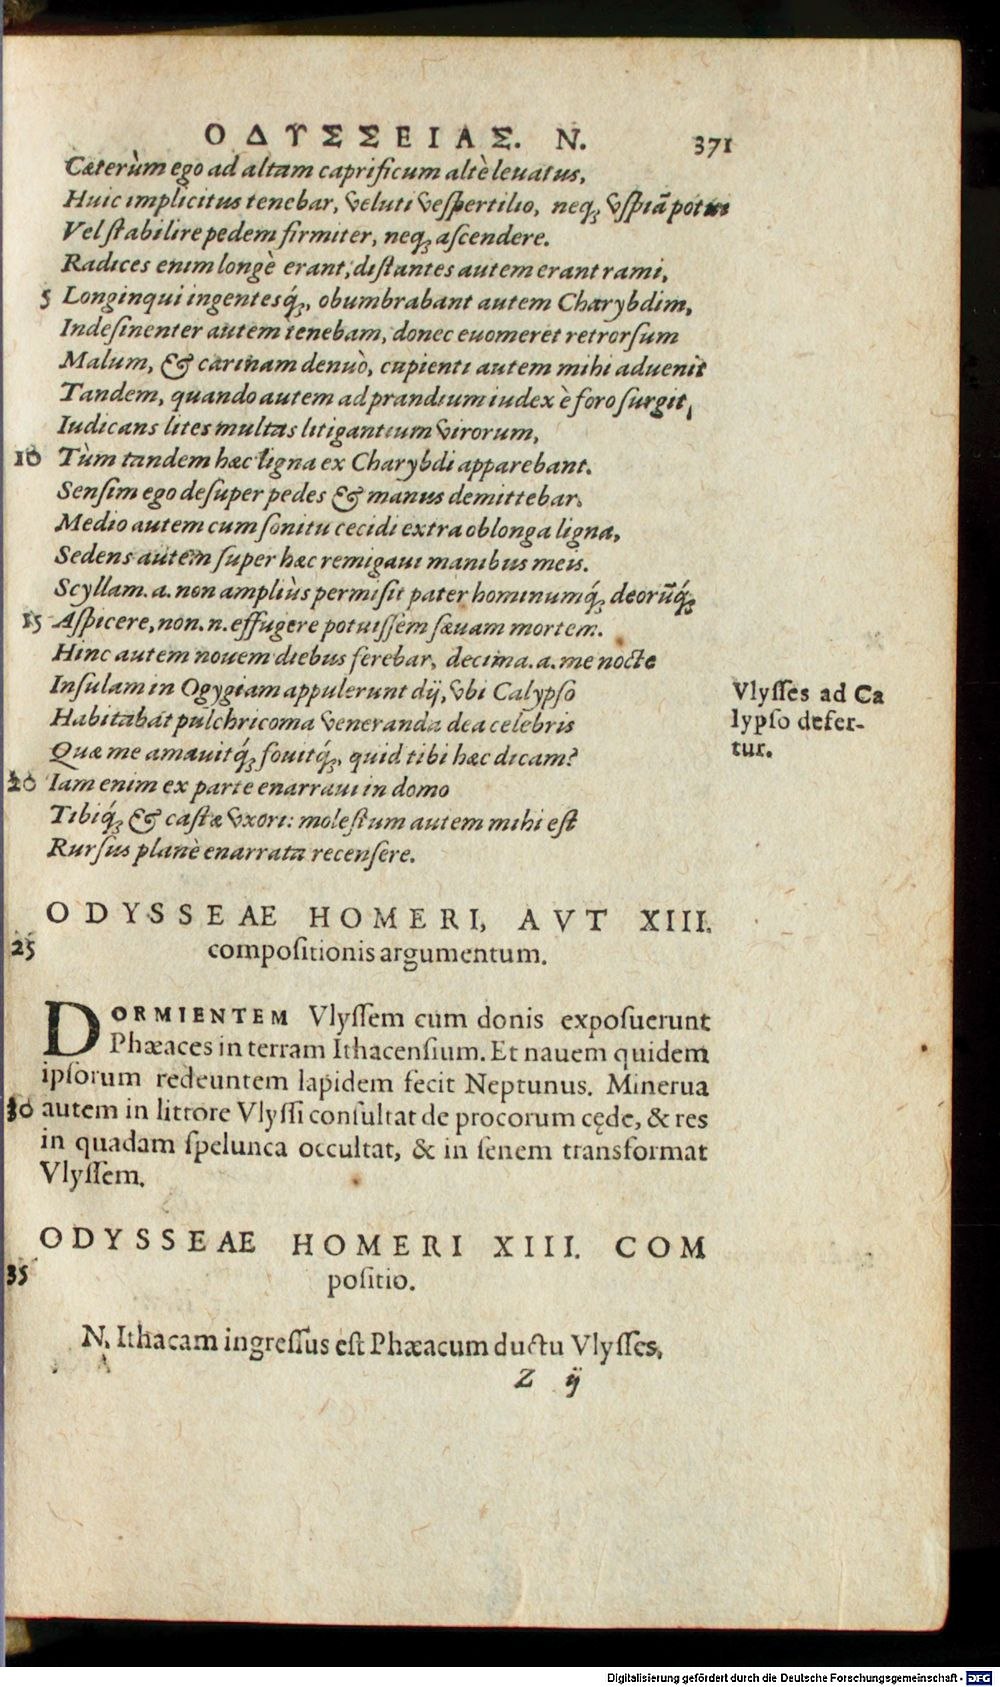 ΟΔΥΣΣΕΙΑΣ. Ν. 371
Cæterùm ego ad altam caprificum altè leuatus,
Huic implicitus tenebar, veluti veſpertilio, neq; vſpiā potui
Vel ſtabilire pedem firmiter, neq; aſcendere.
Radices enim longè erant, diſtantes autem erant rami,
5 Longinqui ingentesq́;, obumbrabant autem Charybdim,
Indeſinenter autem tenebam, donec euomeret retrorſum
Malum, & carinam denuò, cupienti autem mihi aduenit
Tandem, quando autem ad prandium iudex è foro ſurgit,
Iudicans lites multas litigantium virorum,
10 Tùm tandem hæc ligna ex Charybdi apparebant.
Senſim ego deſuper pedes & manus demittebar.
Medio autem cum ſonitu cecidi extra oblonga ligna,
Sedens autem ſuper hæc remigaui manibus meis.
Scyllam. a. non ampliùs permiſit pater hominumq́; deorūq́;
15 Aſpicere, non. n. effugere potuiſſem ſæuam mortem.
Hinc autem nouem diebus ferebar, decima. a. me nocte
Inſulam in Ogygiam appulerunt dij, vbi Calypſo
Habitabat pulchricoma veneranda dea celebris
Quæ me amauitq́; fouitq́;, quid tibi hæc dicam?
20 Iam enim ex parte enarraui in domo
Tibiq́; & caſtæ vxori: moleſtum autem mihi eſt
Rurſus planè enarrata recenſere.
Vlyſſes ad Ca
lypſo defer-
tur.
ODYSSEAE HOMERI, AVT XIII.
25 compoſitionis argumentum.
DORMIENTEM Vlyſſem cum donis expoſuerunt
Phæaces in terram Ithacenſium. Et nauem quidem
ipſorum redeuntem lapidem fecit Neptunus. Minerua
30 autem in littore Vlyſſi conſultat de procorum cęde, & res
in quadam ſpelunca occultat, & in ſenem transformat
Vlyſſem.
ODYSSEAE HOMERI XIII. COM
35 poſitio.
N. Ithacam ingreſſus eſt Phæacum ductu Vlyſſes,
Z ij
Digitalisierung gefördert durch die Deutsche Forschungsgemeinschaft - DFG